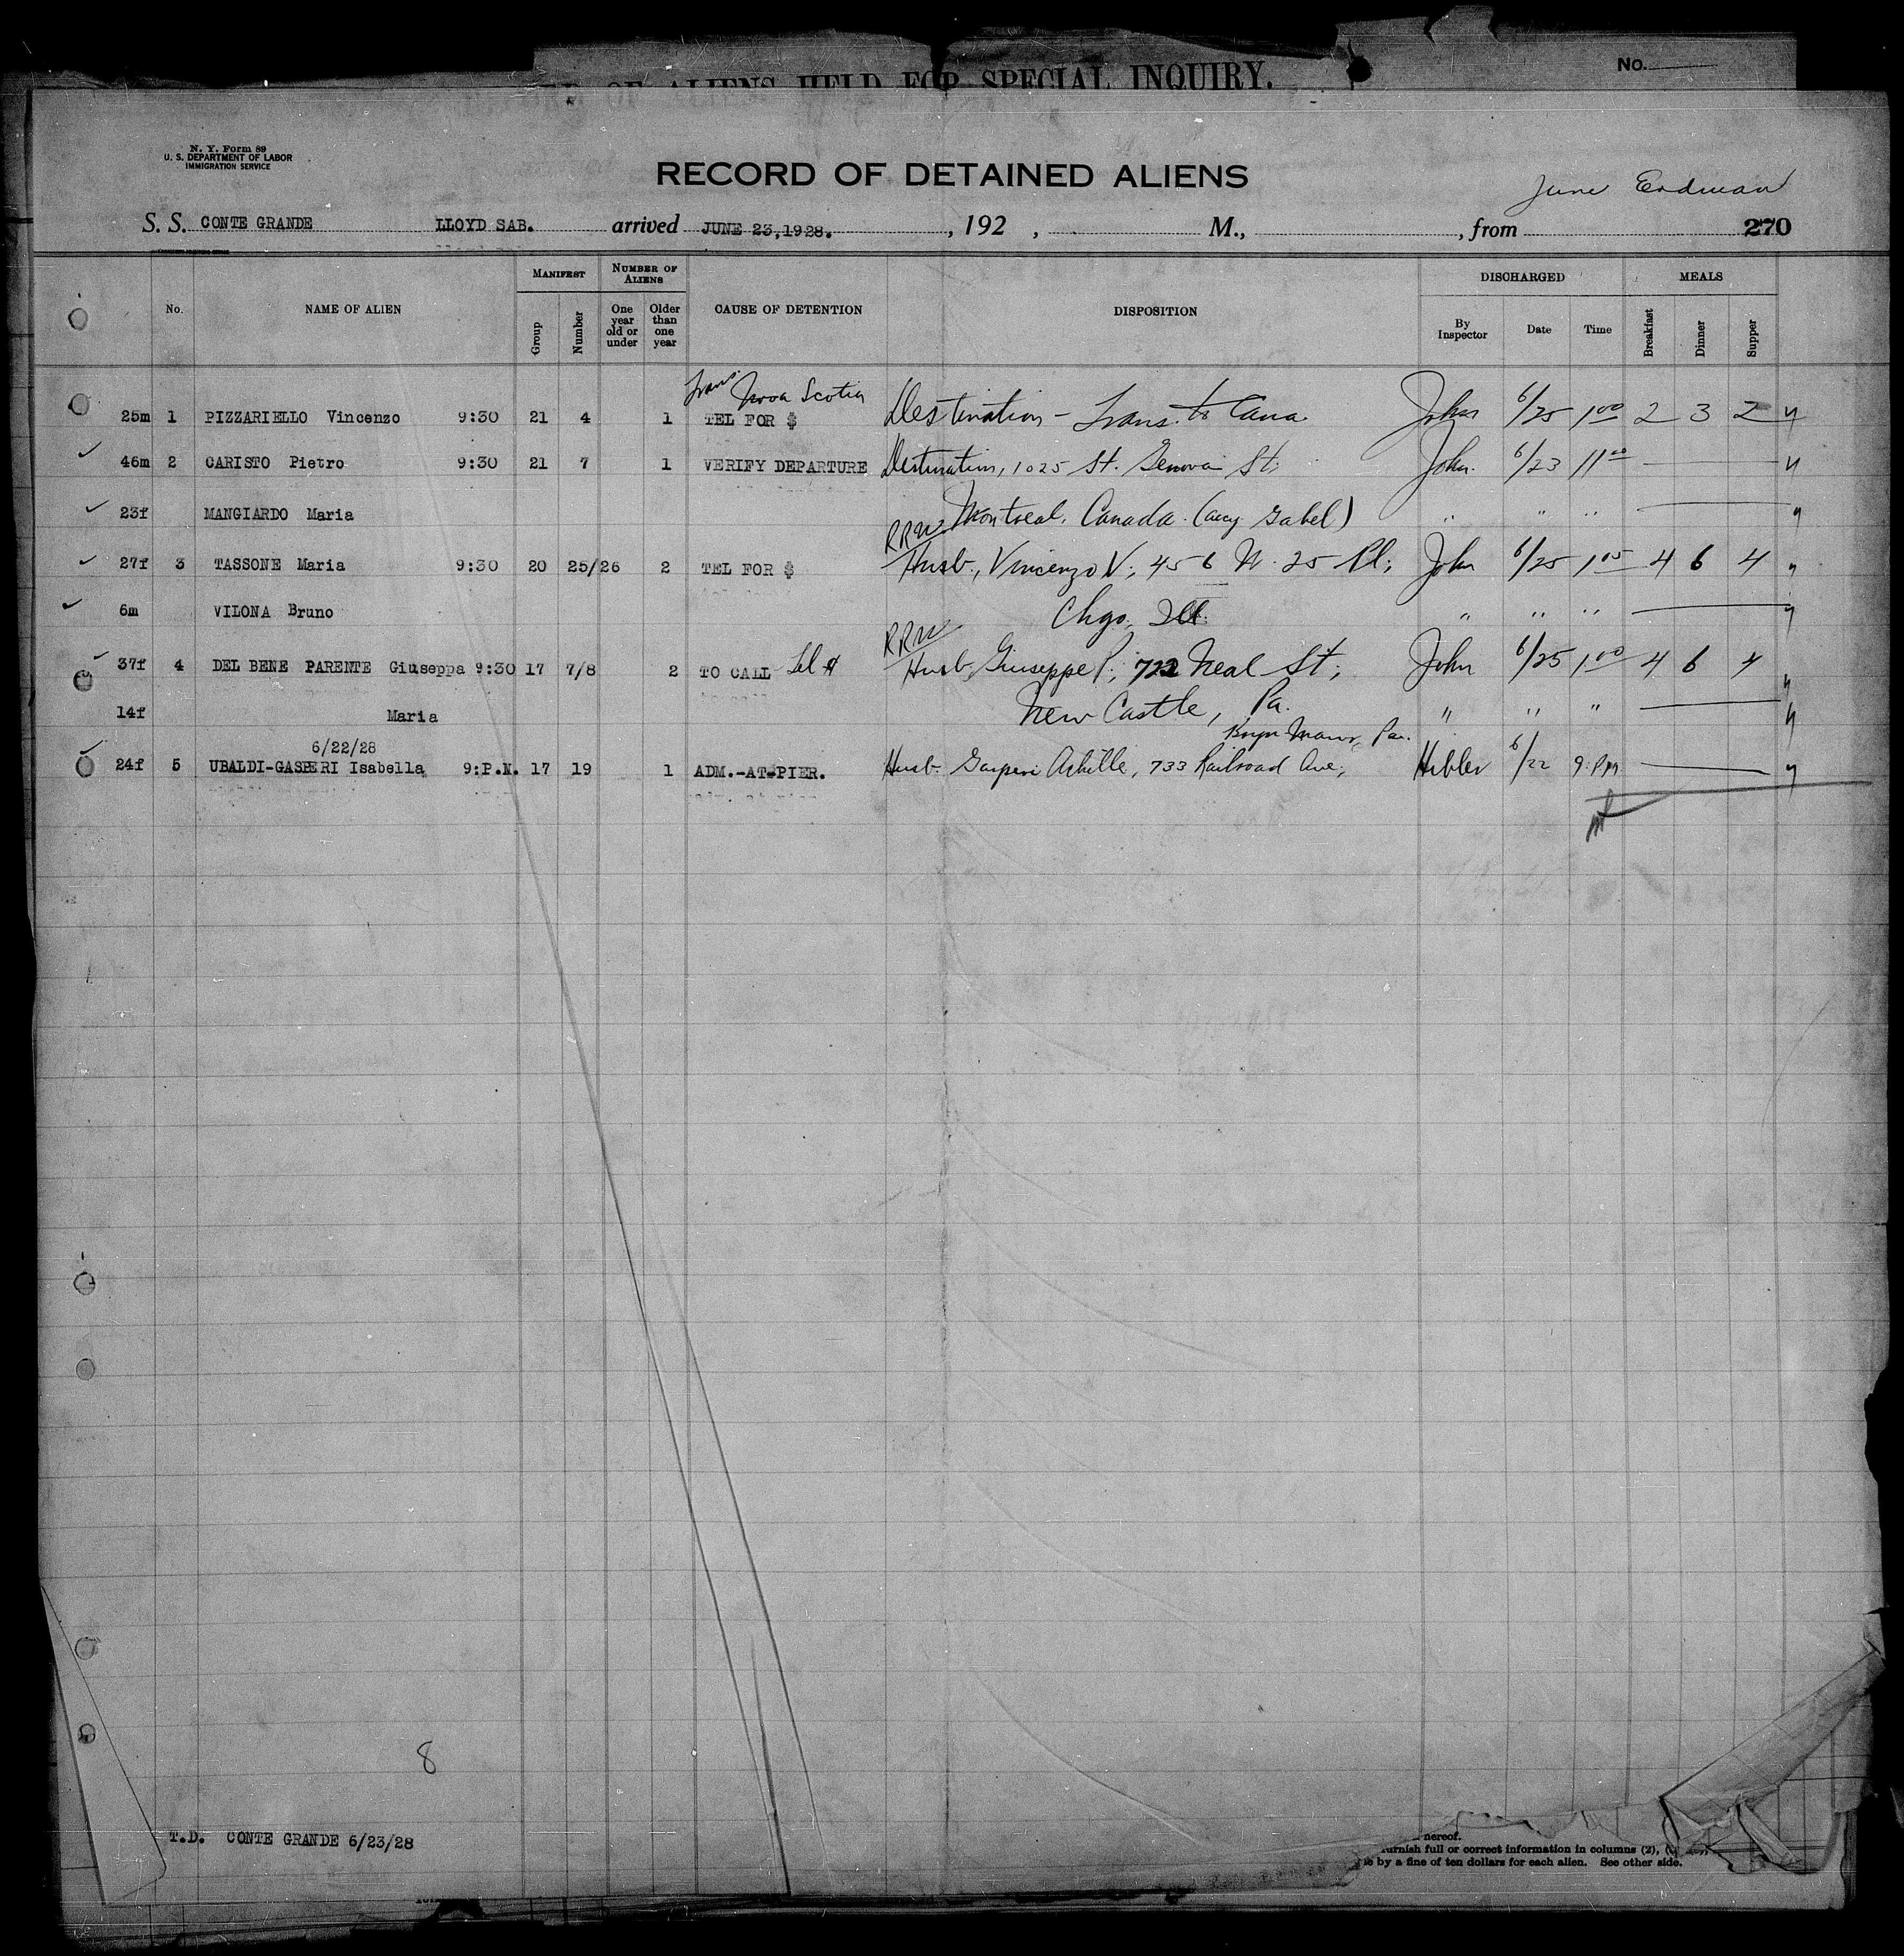 ALIENS HELD FOR SPECIAL INQUIRY.
No.
N. Y. Form 89
U. S. DEPARTMENT OF LABOR
IMMIGRATION SERVICE
RECORD OF DETAINED ALIENS
June Erdman
S. S. CONTE GRANDE LLOYD SAB. arrived JUNE 23,1928. , 192 , M., , from 270
No. NAME OF ALIEN MANIFEST Group Number NUMBER OF ALIENS One year old or under Older than one year CAUSE OF DETENTION DISPOSITION DISCHARGED By Inspector Date Time MEALS Breakfast Dinner Supper
Trans. Nova Scotia
25m 1 PIZZARIELLO Vincenzo 9:30 21 4 1 TEL FOR $ Destination - Trans. to Cana John 6/25 1 00 2 3 2
46m 2 CARISTO Pietro 9:30 21 7 1 VERIFY DEPARTURE Destination, 1025 St. Genova St. John. 6/23 11 00
23f MANGIARDO Maria Montreal, Canada. (accy Gabel) " " "
RRW
27f 3 TASSONE Maria 9:30 20 25/26 2 TEL FOR $ Husb., Vincenzo V., 456 N. 25 Pl., John 6/25 1 05 4 6 4
6m VILONA Bruno Chgo, Ill. " " "
RRW
37f 4 DEL BENE PARENTE Giuseppa 9:30 17 7/8 2 TO CALL Tel $ Husb. Giuseppe P., 722 Neal St., John 6/25 1 00 4 6 4
14f Maria New Castle, Pa. " " "
6/22/28 Bryn Mawr, Pa.
24f 5 UBALDI-GASPERI Isabella 9:P.M. 17 19 1 ADM.-AT-PIER. Husb. Gasperi Achille, 733 Railroad Ave, Hibler 6/22 9 P.M
8
T.D. CONTE GRANDE 6/23/28
hereof.
furnish full or correct information in columns (2),
by a fine of ten dollars for each alien. See other side.